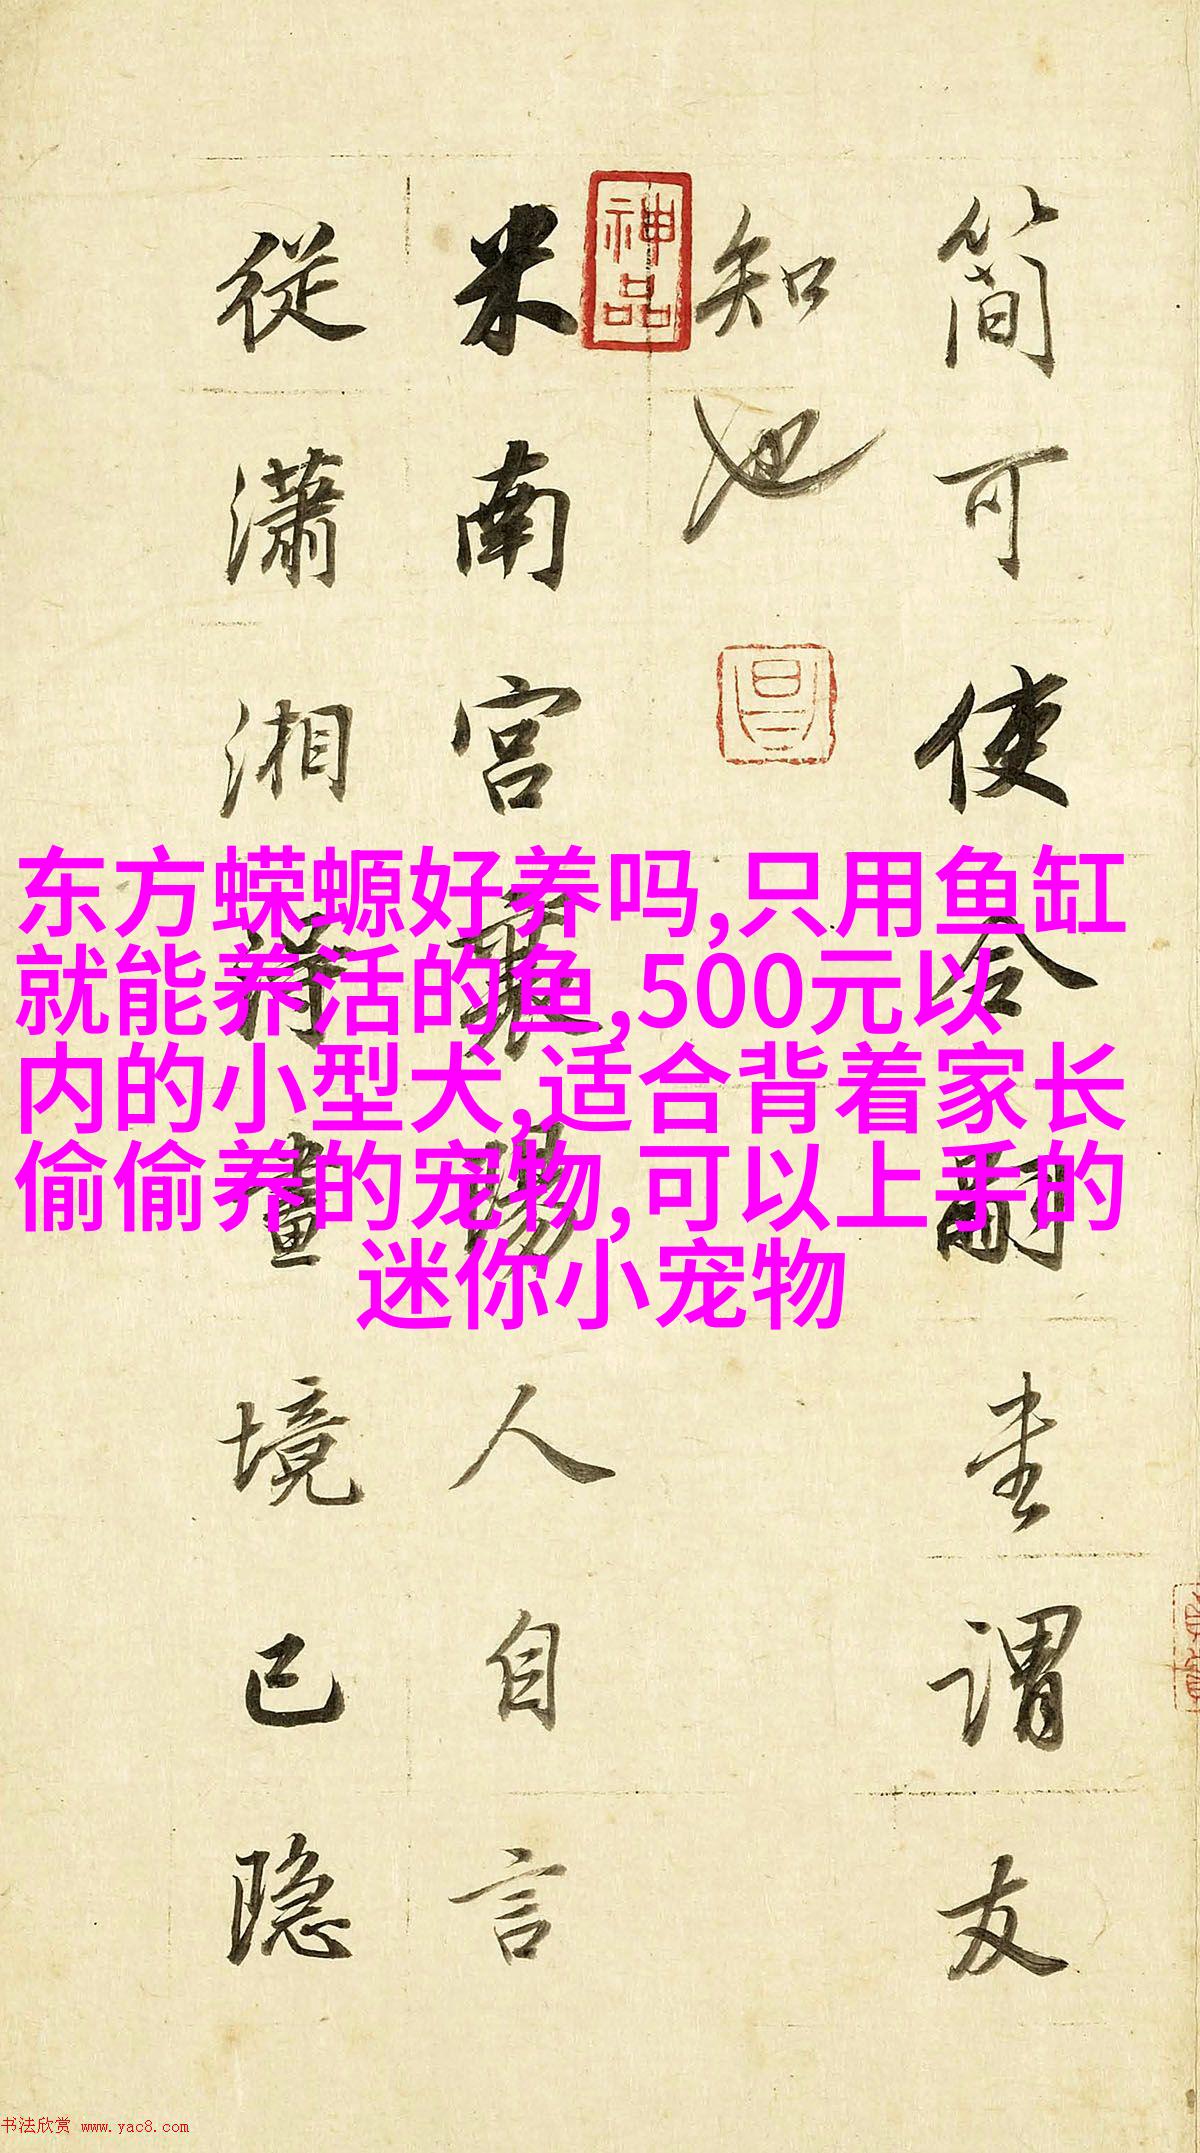 簡可使令嗣書謂友
知也
神品
米南宮襄陽人自言
從瀟湘得畫境已隐
东方蝾螈好养吗,只用鱼缸
就能养活的鱼,500元以
内的小型犬,适合背着家长
偷偷养的宠物,可以上手的
迷你小宠物
书法欣赏 www.yac8.com